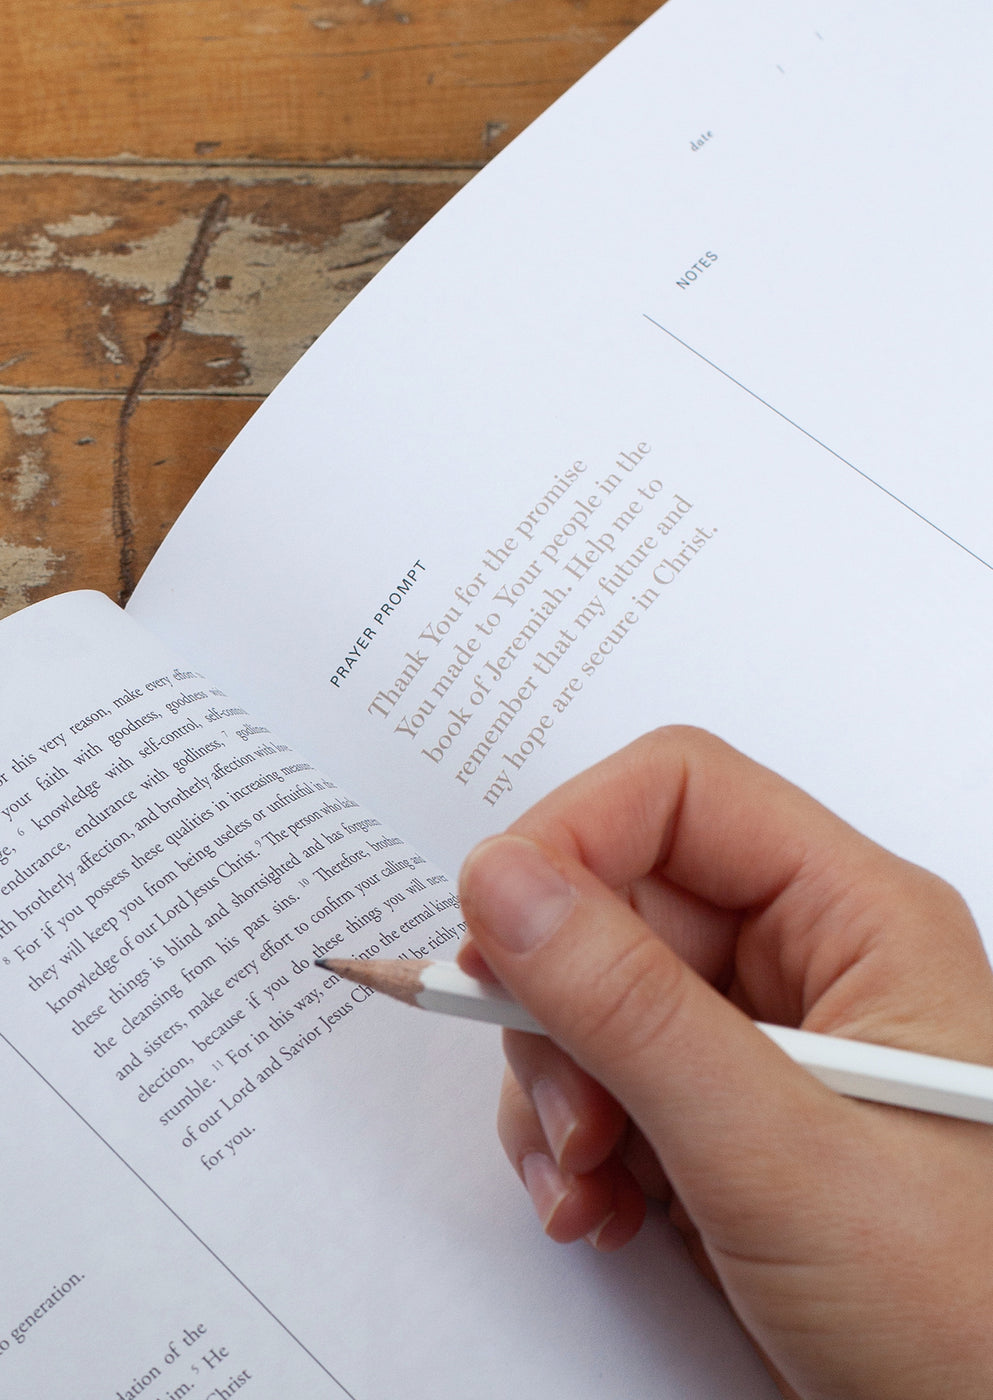 or this very reason, make every effort
your faith with goodness, goodness
ge, 6 knowledge with self-control, self-control
endurance, endurance with godliness, 7 godliness
th brotherly affection, and brotherly affection with love.
8 For if you possess these qualities in increasing measure,
they will keep you from being useless or unfruitful in the
knowledge of our Lord Jesus Christ. 9 The person who lacks
these things is blind and shortsighted and has forgotten
the cleansing from his past sins. 10 Therefore, brothers
and sisters, make every effort to confirm your calling and
election, because if you do these things you will never
stumble. 11 For in this way, en into the eternal kingd
of our Lord and Savior Jesus Ch ll be richly p
for you.
to generation.
dation of the
him. 5 He
Christ
date
NOTES
PRAYER PROMPT
Thank You for the promise
You made to Your people in the
book of Jeremiah. Help me to
remember that my future and
my hope are secure in Christ.